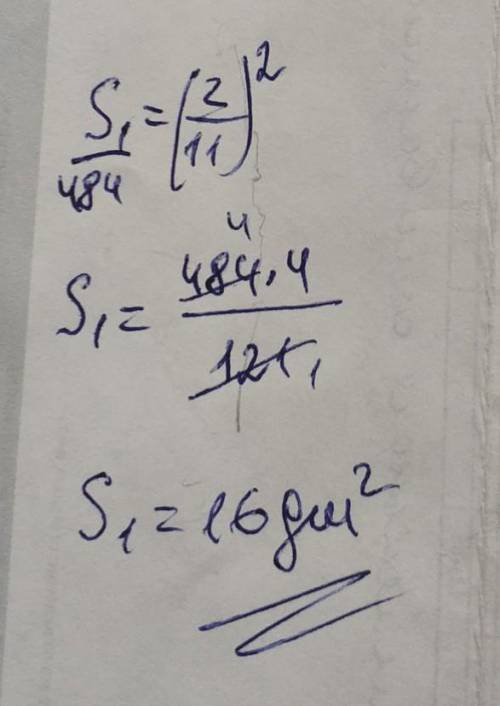 S₁/484 = (2/11)²
S₁ = 484·4/121
4
1
S₁ = 16 дм²